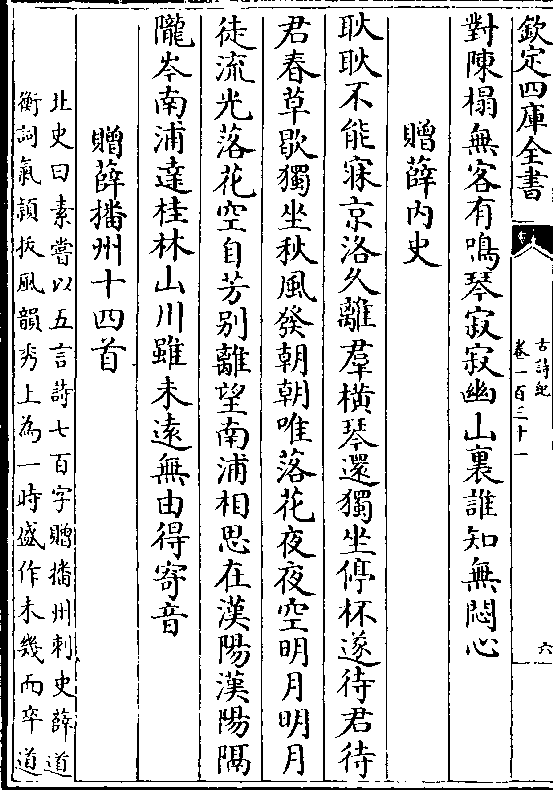 欽定四庫全書
古詩紀
卷一百三十一
六
對陳榻無客有鳴琴寂寂幽山裏誰知無悶心
贈薛內史
耿耿不能寐京洛久離羣橫琴還獨坐停杯遂待君待
君春草歇獨坐秋風發朝朝唯落花夜夜空明月明月
徒流光落花空自芳别離望南浦相思在漢陽漢陽隔
隴岑南浦達桂林山川雖未遠無由得寄音
贈薛播州十四首
北史曰素嘗以五言詩七百字贈播州刺史薛道
衡詞氣頴拔風韻秀上為一時盛作未幾而卒道